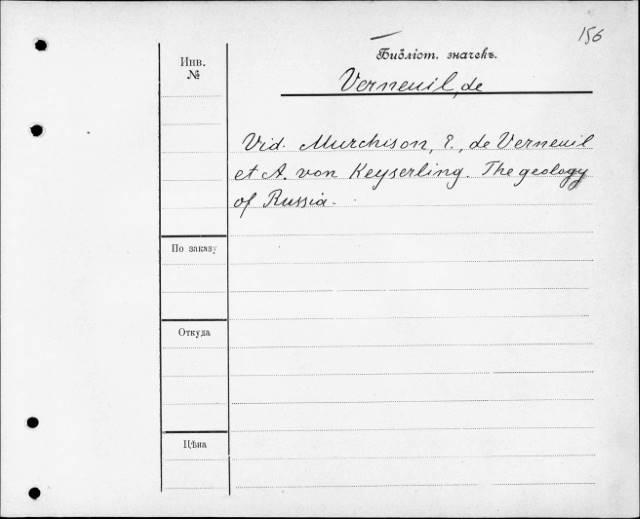 156
Библіот. значекъ.
Инв.
№
Verneuil, de
Vid. Murchison, E., de Verneuil
et A. von Keyserling. The geology
of Russia.
По заказу
Откуда
Цѣна